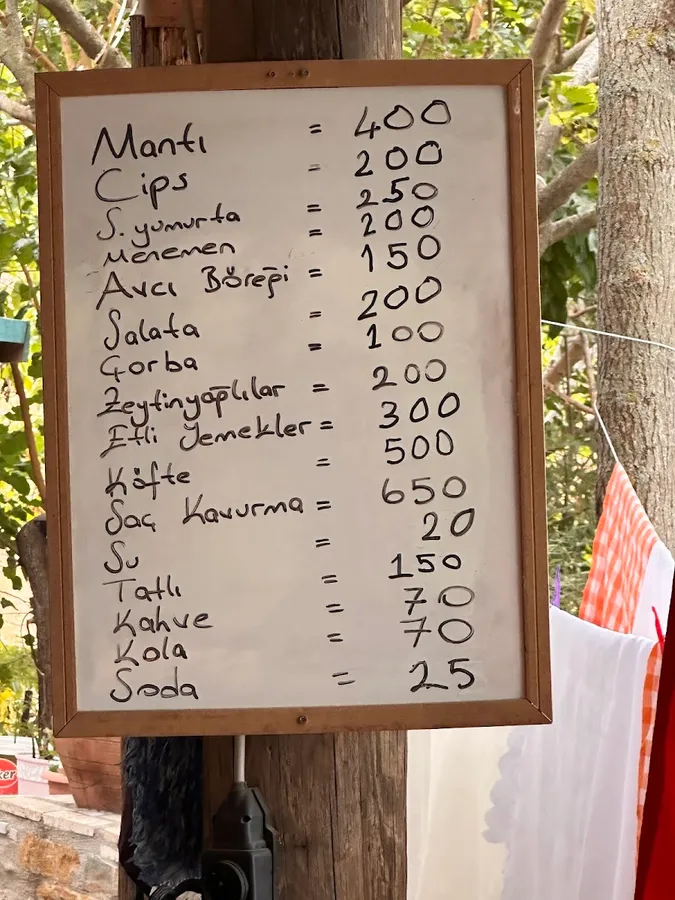 Mantı = 400
Cips = 200
S. yumurta = 250
Menemen = 200
Avcı Böreği = 150
Salata = 200
Çorba = 100
Zeytinyağlılar = 200
Etli Yemekler = 300
Köfte = 500
Saç Kavurma = 650
Su = 20
Tatlı = 150
Kahve = 70
Kola = 70
Soda = 25